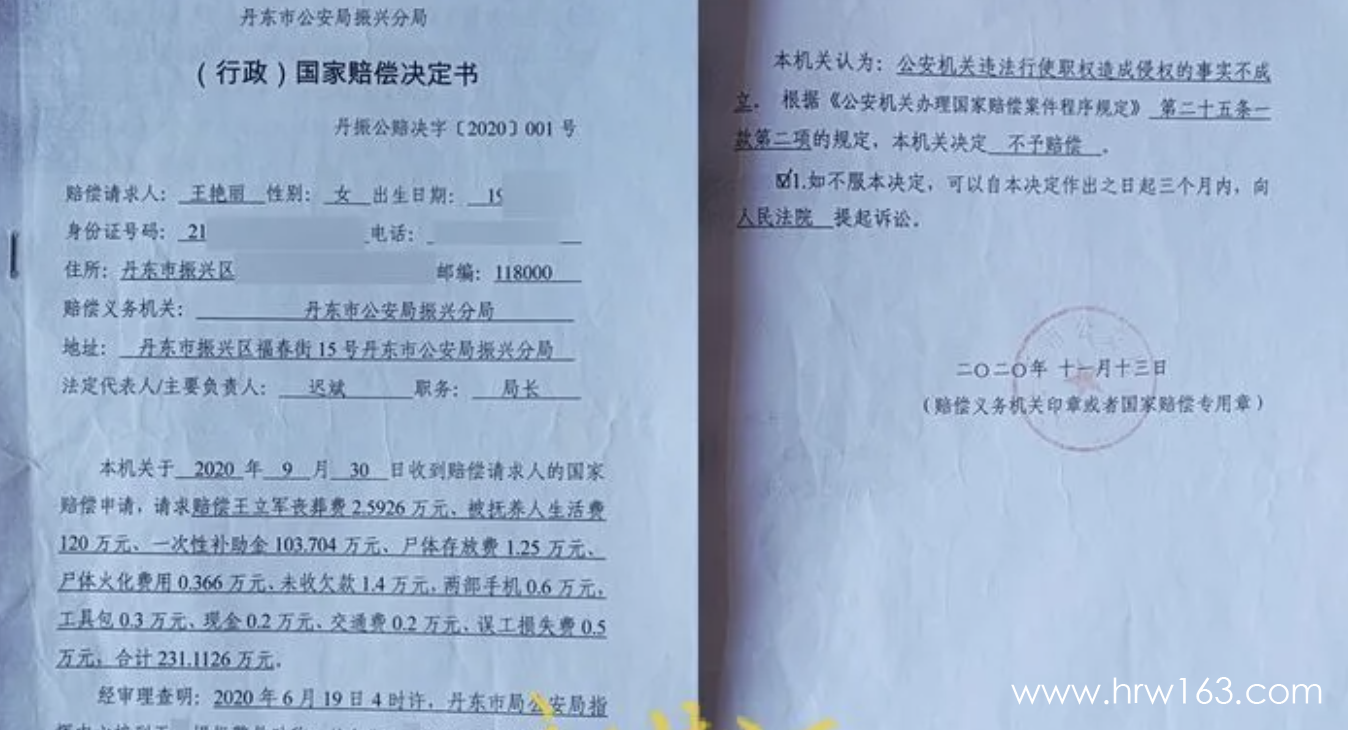 丹东市公安局振兴分局
（行政）国家赔偿决定书
丹振公赔决字〔2020〕001 号
赔偿请求人：王艳丽 性别：女 出生日期：19
身份证号码：21 电话：
住所：丹东市振兴区 邮编：118000
赔偿义务机关：丹东市公安局振兴分局
地址：丹东市振兴区福春街 15 号丹东市公安局振兴分局
法定代表人/主要负责人：迟斌 职务：局长
本机关于 2020 年 9 月 30 日收到赔偿请求人的国家
赔偿申请，请求赔偿王立军丧葬费 2.5926 万元、被抚养人生活费
120 万元、一次性补助金 103.704 万元、尸体存放费 1.25 万元、
尸体火化费用 0.366 万元、未收欠款 1.4 万元，两部手机 0.6 万元，
工具包 0.3 万元、现金 0.2 万元、交通费 0.2 万元、误工损失费 0.5
万元，合计 231.1126 万元。
经审理查明：2020 年 6 月 19 日 4 时许，丹东市局公安局指
本机关认为：公安机关违法行使职权造成侵权的事实不成
立。根据《公安机关办理国家赔偿案件程序规定》第二十五条一
款第二项的规定，本机关决定 不予赔偿 。
☑1.如不服本决定，可以自本决定作出之日起三个月内，向
人民法院 提起诉讼。
二〇二〇年 十一月十三日
（赔偿义务机关印章或者国家赔偿专用章）
www.hrw163.com